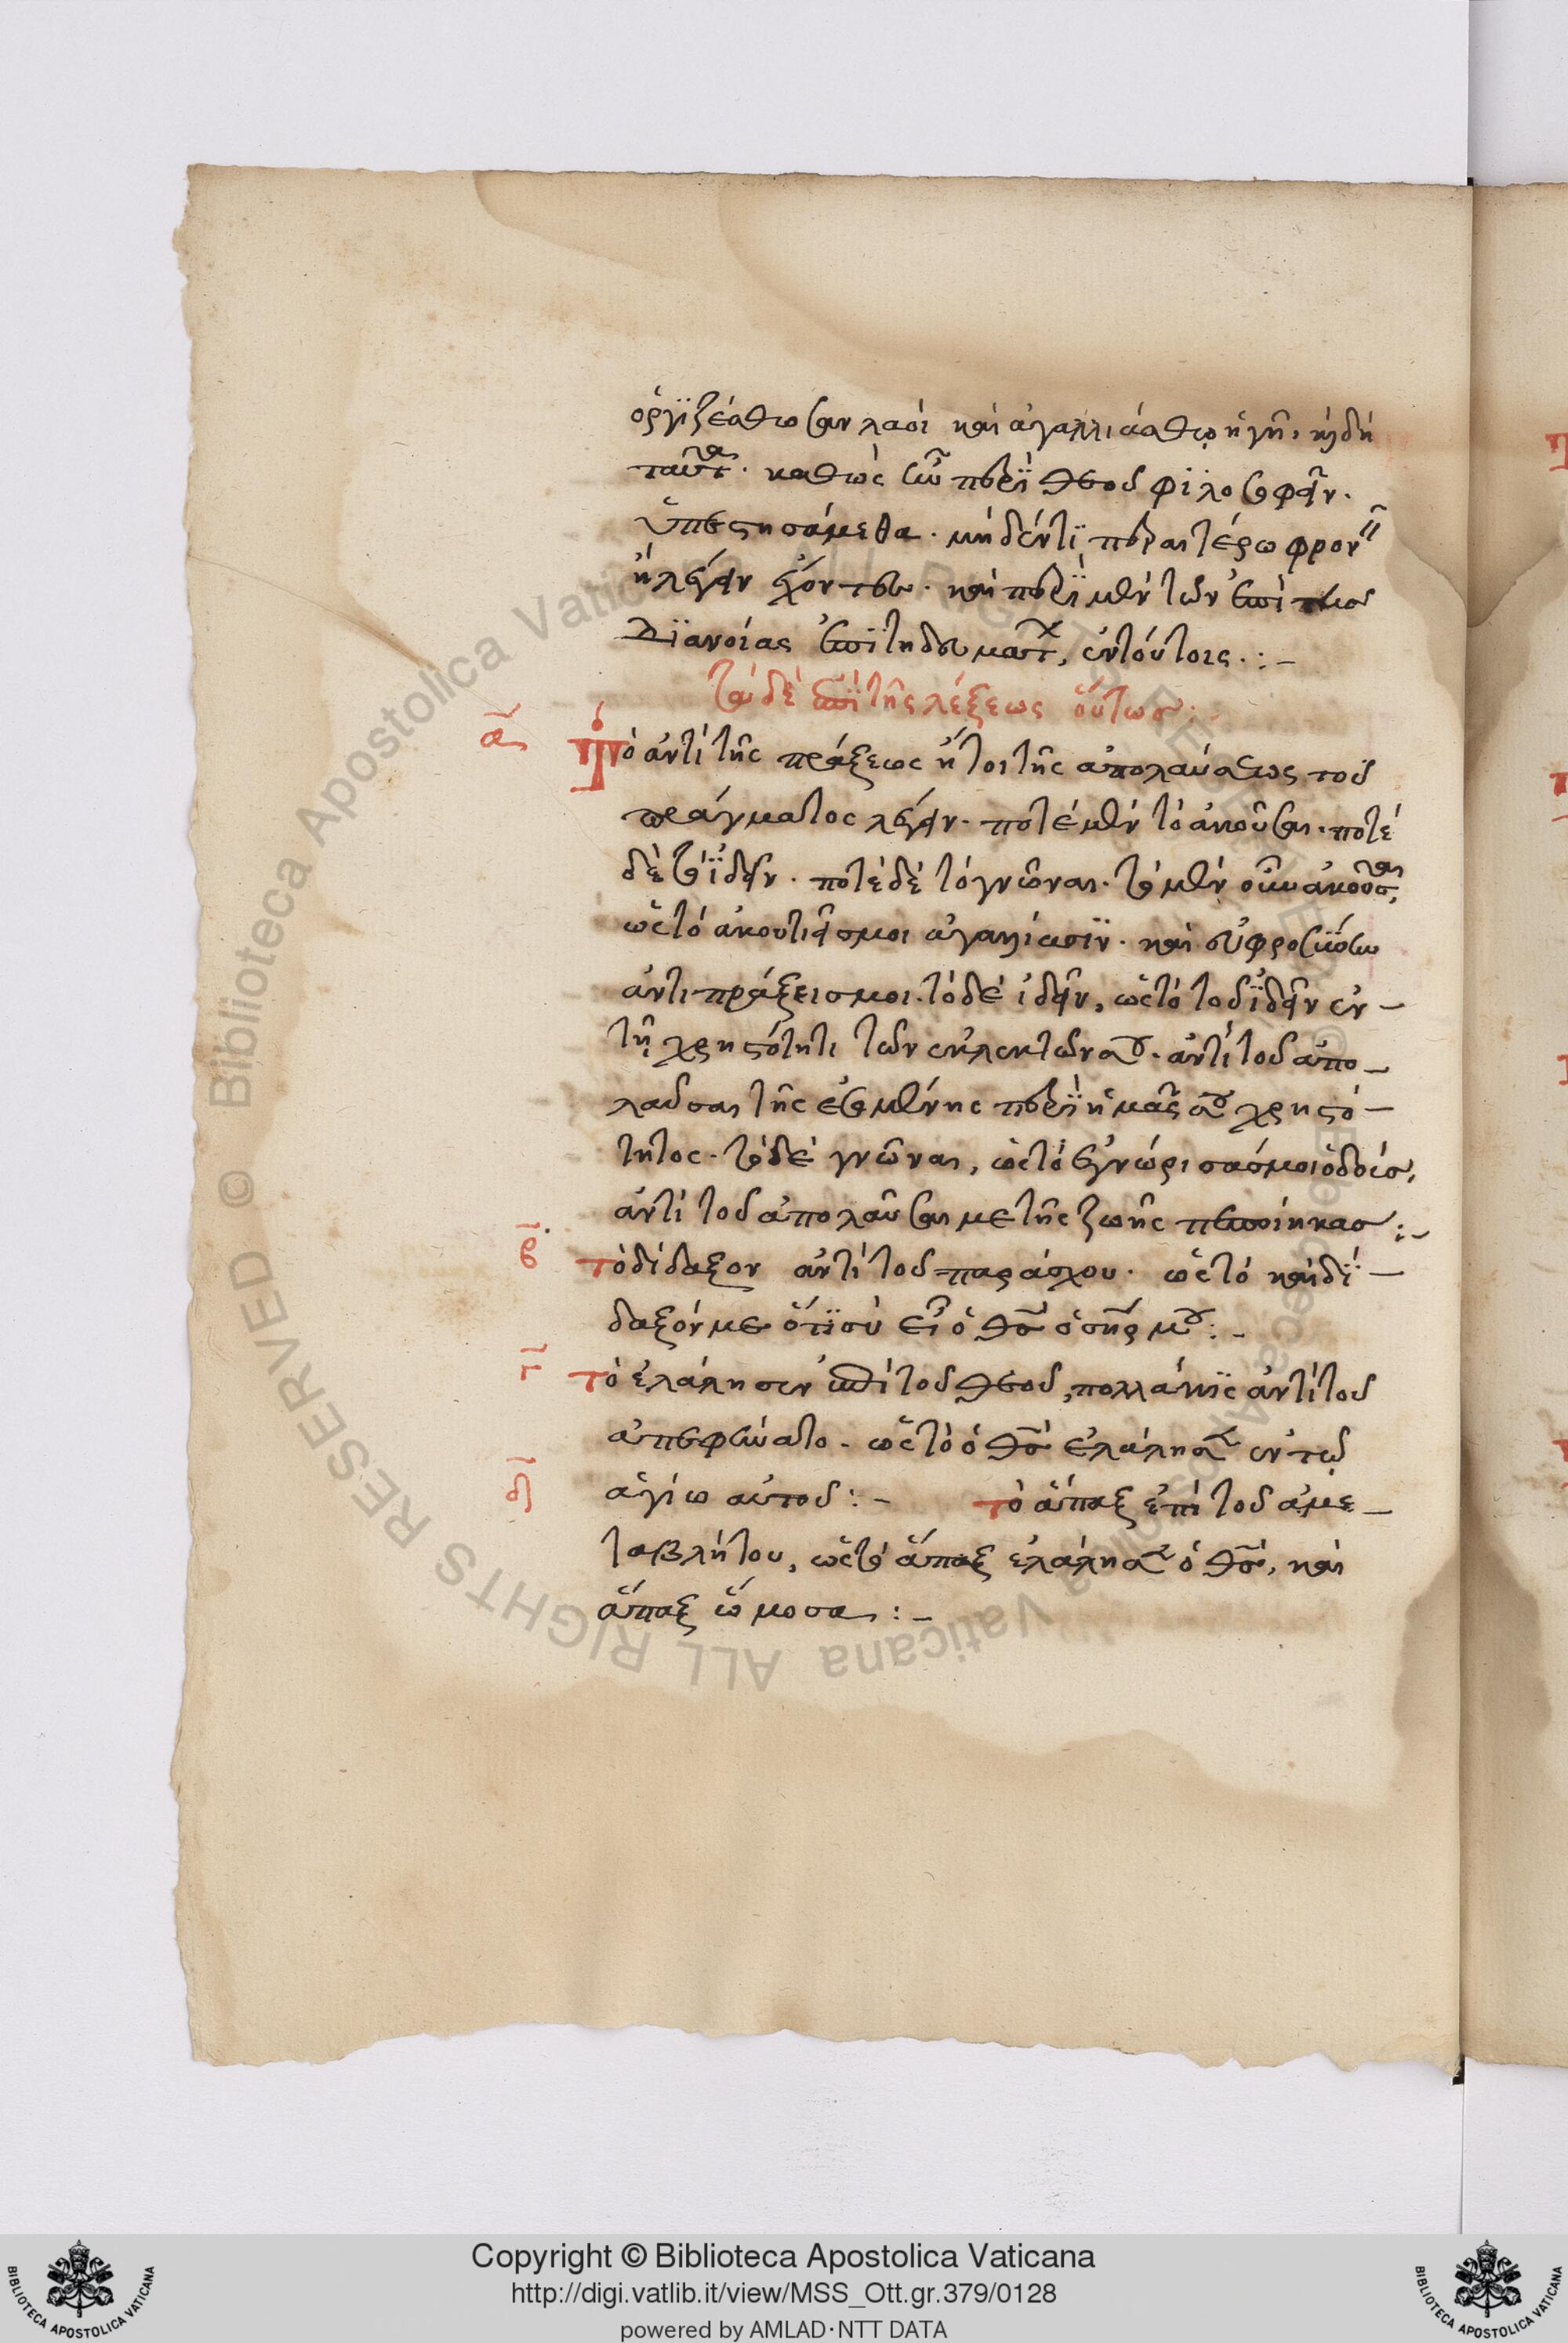 ὀργϊζέσθωσαν λαοὶ καὶ ἀγαλλιάσθω ἡ γῆ, κἠδὴ
ταῦτα. καθὼς οὖν περῒ θεοῦ φϊλοσοφεῖν.
ὑπεστησάμεθα. μηδέν τϊ περαιτέρω φρον
ἢ λέγειν ἔχοντες. καὶ περῒ μὲν τῶν ἐπὶ τῆς
Δϊανοίας ἐπϊτηδευμάτων, ἐν τούτοις.:-
τὰ δὲ ἐπῒ τῆς λέξεως οὕτως:
α
Τὸ ἀντὶ τῆς πράξεως ἤτοι τῆς ἀπολαύσεως τοῦ
πράγματος λέγειν. ποτὲ μὲν τὸ ἀκοῦσαι. ποτὲ
δὲ τὸ ἰ̈δεῖν. ποτὲ δὲ τὸ γνῶναι. τὸ μὲν οὖν ἀκοῦσαι,
ὡς τὸ ἀκουτιεῖς μοι ἀγαλλίασϊν. καὶ εὐφροσύνην
ἀντι πράξεις μοι. τὸ δὲ ἰδεῖν, ὡς τὸ τοῦ ἰ̈δεῖν ἐν
τῇ χρηστότητι τῶν ἐκλεκτῶν σου. ἀντὶ τοῦ ἀπο
λαῦσαι τῆς ἐσομένης περῒ ἡμᾶς σου χρηστό
τητος. τὸ δὲ γνῶναι, ὡς τὸ ἐγνώρισάς μοι ὁδοὺς,
ἀντὶ τοῦ ἀπολαῦσαι με τῆς ζωῆς πεποίηκας:-
β
τὸ δίδαξον ἀντὶ τοῦ παράσχου. ὡς τὸ καὶ δϊ
δαξόν με ὅτϊ σὺ εἶ ὁ θς ὁ σηρ μου:-
γ
τὸ ἐλάλησεν ἐπὶ τοῦ θεοῦ, πολλάκϊς ἀντὶ τοῦ
ἀπεφήνατο. ὡς τὸ ὁ θς ἐλάλησεν ἐν τῷ
δ
ἁγίω αὐτοῦ:- τὸ ἅπαξ ἐπὶ τοῦ ἀμε
ταβλήτου, ὡς τὸ ἅπαξ ἐλάλησεν ὁ θς, καὶ
ἅπαξ ὤμοσα:-
Copyright © Biblioteca Apostolica Vaticana
http://digi.vatlib.it/view/MSS_Ott.gr.379/0128
powered by AMLAD·NTT DATA